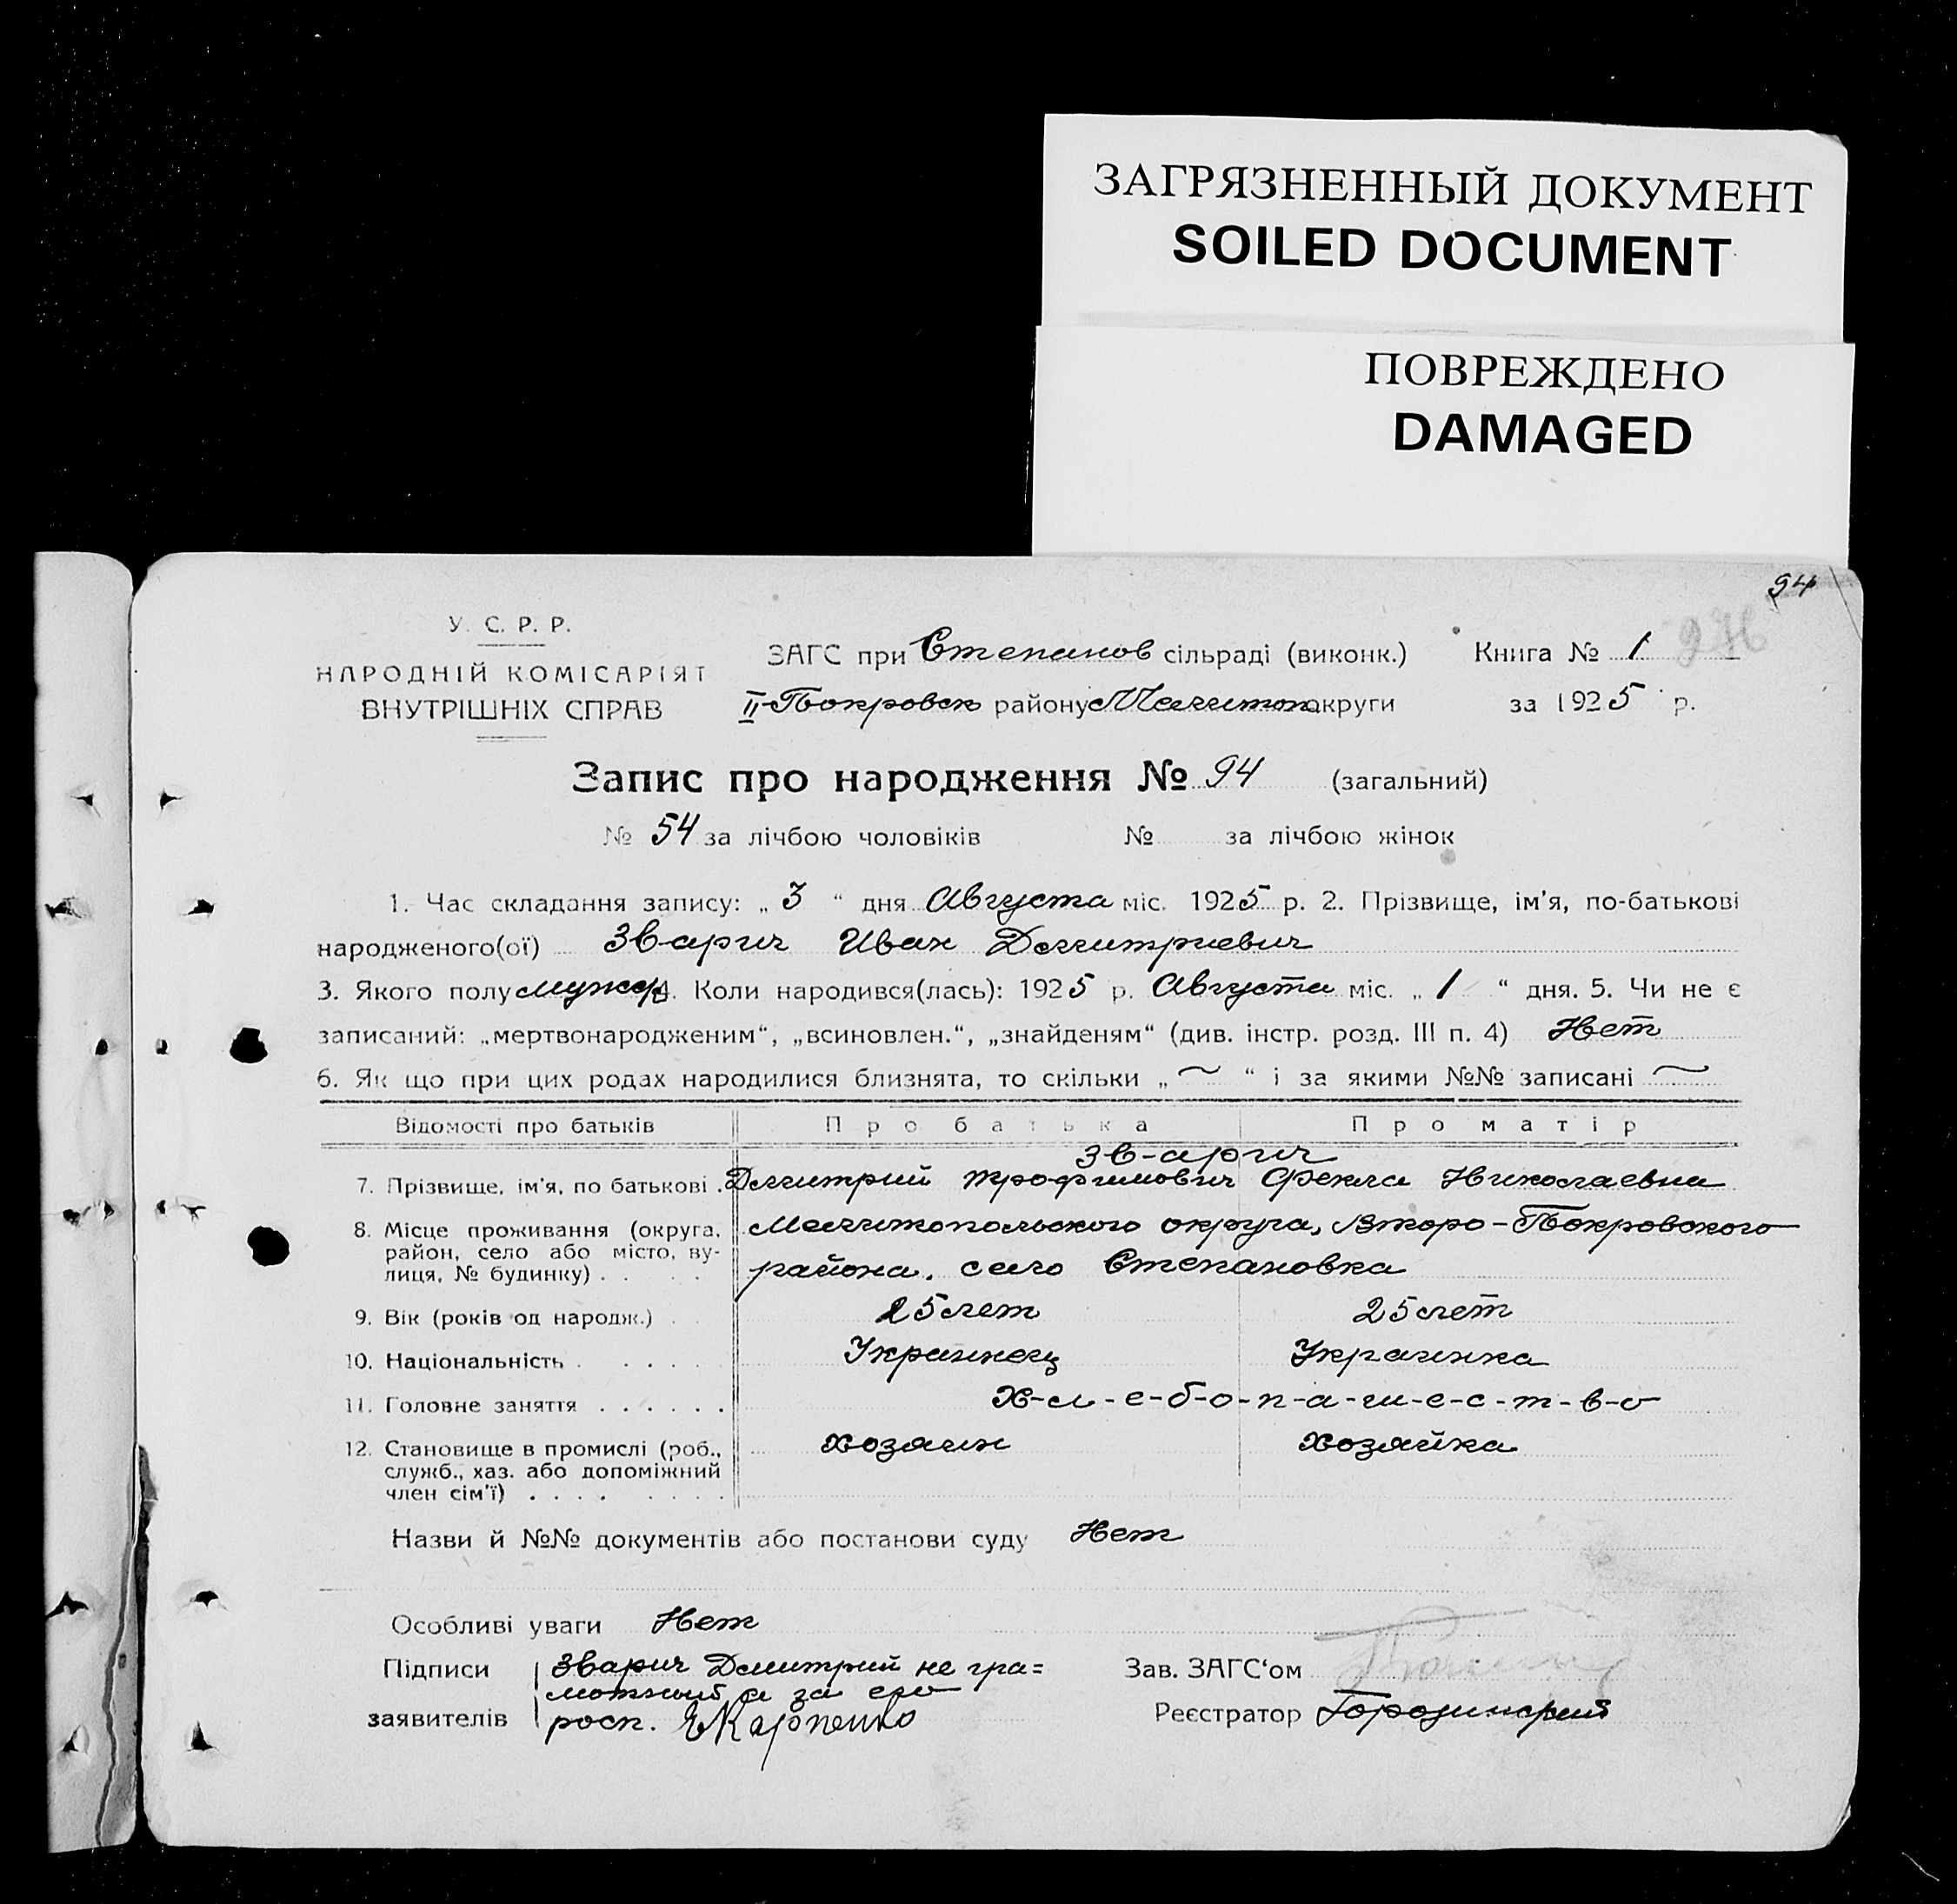 ЗАГРЯЗНЕННЫЙ ДОКУМЕНТ
SOILED DOCUMENT
ПОВРЕЖДЕНО
DAMAGED
94
У. С. Р. Р.
НАРОДНІЙ КОМІСАРІЯТ
ВНУТРІШНІХ СПРАВ
ЗАГС при Степанов сільраді (виконк.) Книга № 1
II-Покровск району Мелитоп округи за 1925 р.
Запис про народження № 94 (загальний)
№ 54 за лічбою чоловіків № за лічбою жінок
1. Час складання запису: „ 3 “ дня Августа міс. 1925 р. 2. Прізвище, ім'я, по-батькові
народженого(ої) Зварич Иван Дмитриевич
3. Якого полу мужс 4. Коли народився(лась): 1925 р. Августа міс. „ 1 “ дня. 5. Чи не є
записаний: „мертвонародженим“, „всиновлен.“, „знайденям“ (див. інстр. розд. III п. 4) Нет
6. Як що при цих родах народилися близнята, то скільки „ ~ “ і за якими №№ записані ~
Відомості про батьків Про батька Про матір
Зв-арич
7. Прізвище, ім'я, по батькові . Дмитрий Трофимович Фекла Николаевна
8. Місце проживання (округа, район, село або місто, вулиця, № будинку) . . Мелитопольского округа, Второ-Покровского
района, село Степановка
9. Вік (років од народж.) . . 25 лет 25 лет
10. Національність . . . . . Украинец Украинка
11. Головне заняття . . . . . . Х-л-е-б-о-п-а-ш-е-с-т-в-о
12. Становище в промислі (роб., служб., хаз. або допоміжний член сім'ї) . . . . хозяин хозяйка
Назви й №№ документів або постанови суду Нет
Особливі уваги Нет
Підписи Зварич Дмитрий не гра=
мотный а за его
заявителів росп. Карпенко
Зав. ЗАГС'ом
Реєстратор